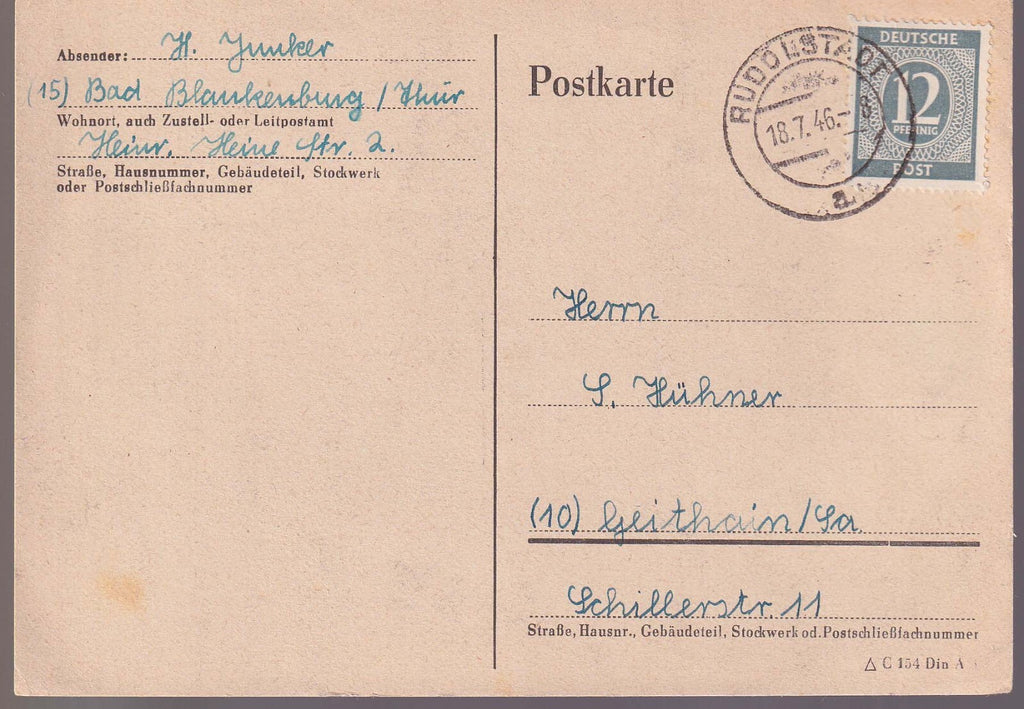 Absender: H. Junker
(15) Bad Blankenburg / Thür
Wohnort, auch Zustell- oder Leitpostamt
Heinr. Heine Str. 2.
Straße, Hausnummer, Gebäudeteil, Stockwerk
oder Postschließfachnummer
Postkarte
RUDOLSTADT
18.7.46.-8
a
DEUTSCHE
12
PFENNIG
POST
Herrn
S. Hühner
(10) Geithain/Sa
Schillerstr 11
Straße, Hausnr., Gebäudeteil, Stockwerk od. Postschließfachnummer
△ C 154 Din A